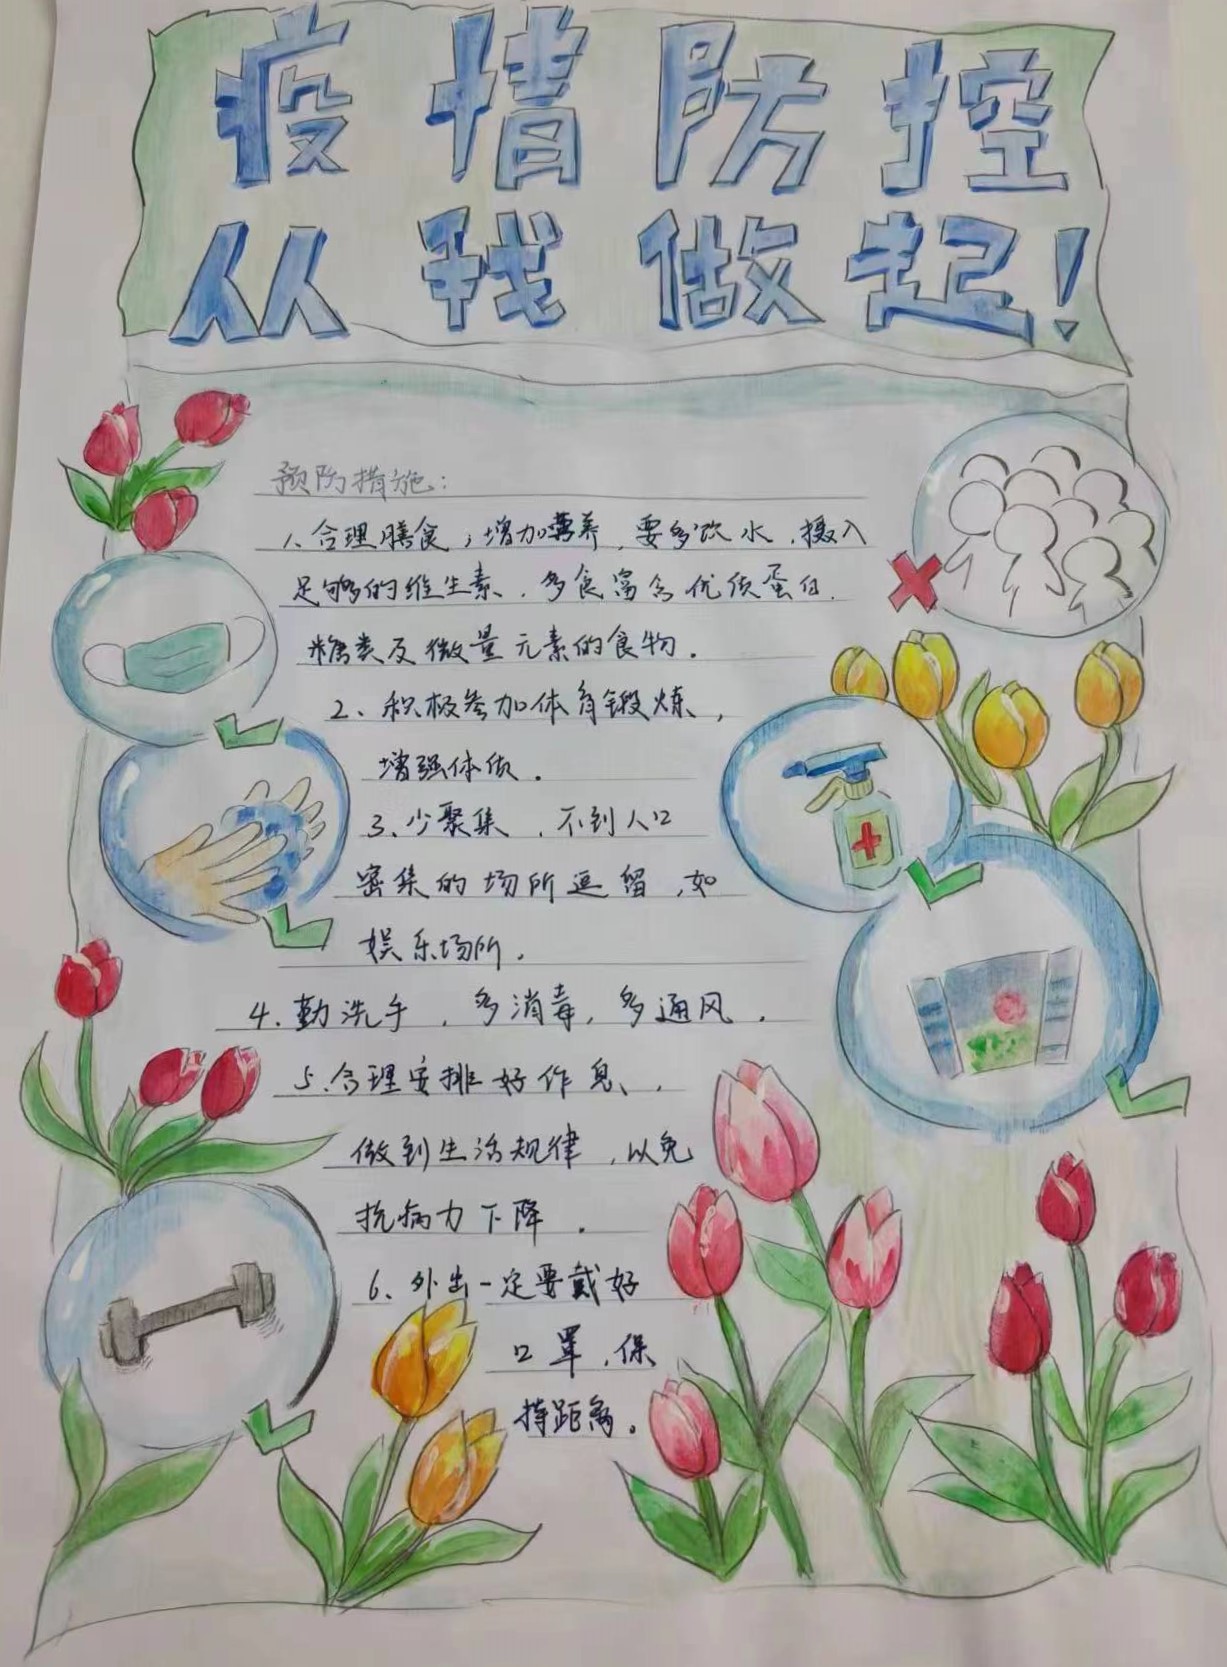 疫情防控
从我做起!
预防措施:
1、合理膳食,增加营养,要多饮水,摄入
足够的维生素,多食富含优质蛋白,
糖类及微量元素的食物.
2、积极参加体育锻炼,
增强体质.
3、少聚集,不到人口
密集的场所逗留,如
娱乐场所.
4.勤洗手,多消毒,多通风.
5.合理安排好作息,
做到生活规律,以免
抗病力下降.
6、外出一定要戴好
口罩,保
持距离。